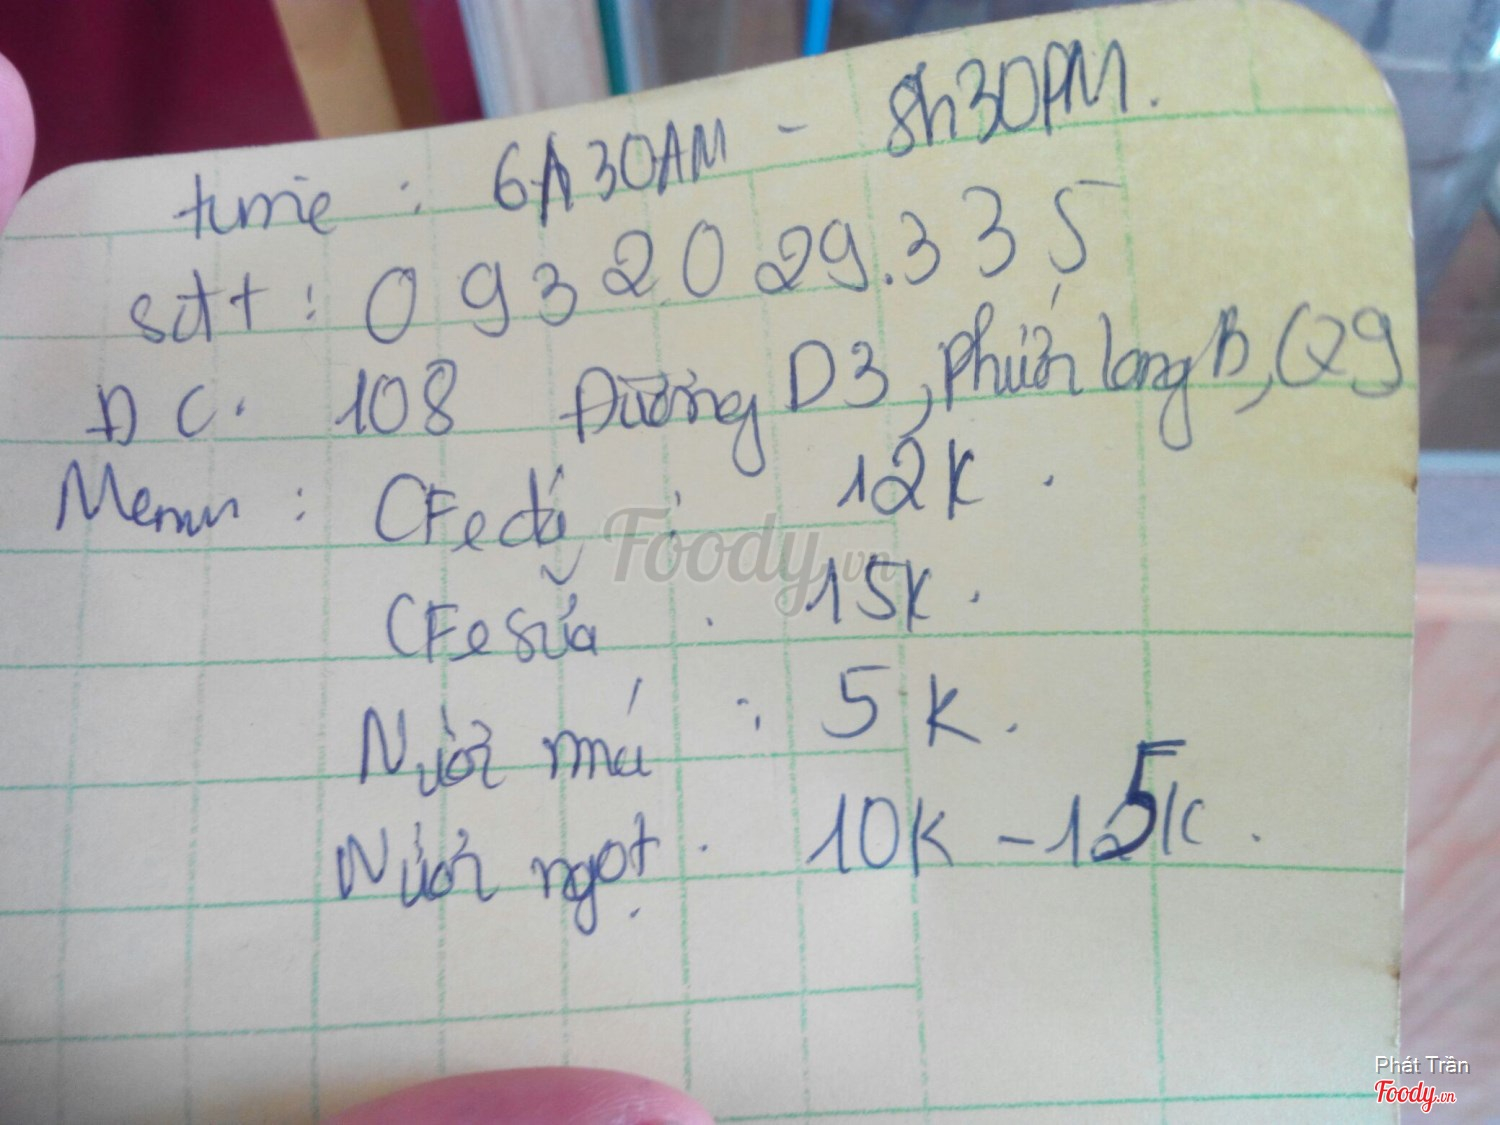 time : 6h30AM - 8h30PM.
sđt : 0932029.335
ĐC. 108 Đường D3, Phước Long B, Q9
Menu : CFe đá : 12K.
CFe sữa : 15K.
Nước má : 5K.
Nước ngọt. 10K - 15K.
Foody.vn
Phát Trần
Foody.vn